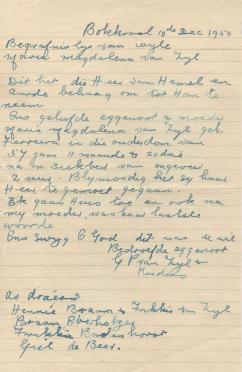 Bokkraal 10de Dec 1950
Begrafnis lys van wyle
Maria Magdalena van Zyl
Dit het die Heer van Hemel en
aarde behaag om tot Hom te
neem
Ons geliefde eggenoot & moeder
Maria Magdalena van Zyl geb.
in die ouderdom van
57 jaar 11 maande & dae
na n siekbed van ongeveer
2 uur. Blymoedig het sy haar
Heer tegemoet gegaan.
Ek gaan Huis toe en ook na
my moeder, was haar laatste
woorde
Ons swyg O God dit was u wil
Bedroefde eggenoot
G P van Zyl &
Kinders
as draers
Hennie Braam & Frikkie van Zyl
Braam Oberholzer
Frikkie Badenhorst
Giel de Beer.